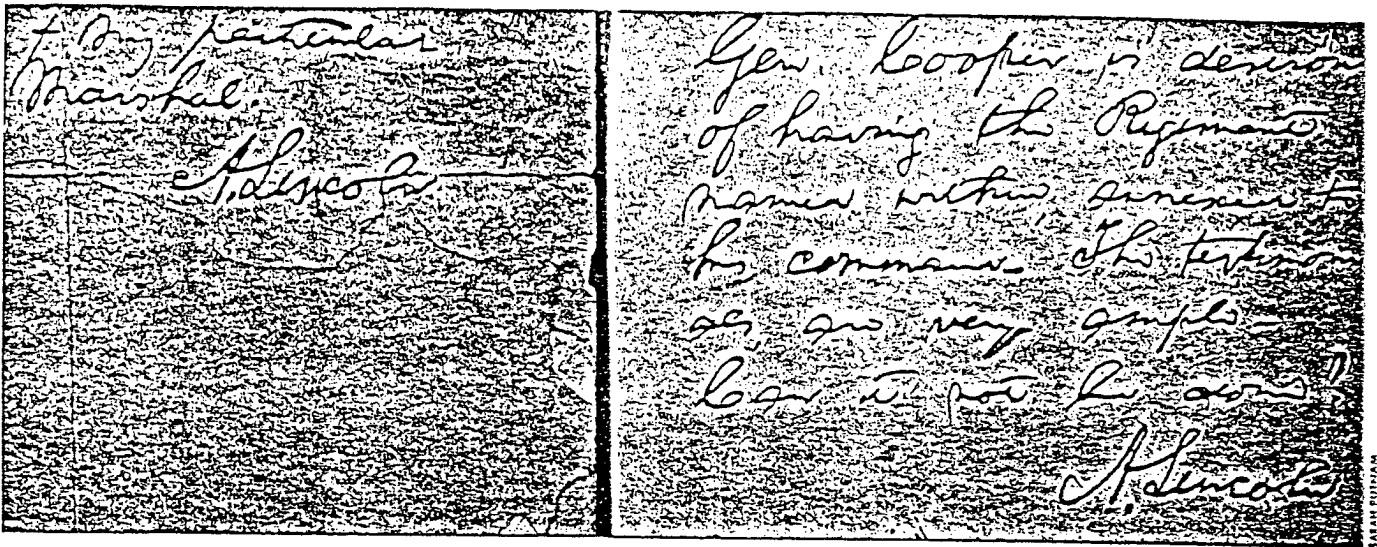 + My particular
Marshal.
A. Lincoln
Gen. Cooper is desirou
of having the Regiment
named within annexed to
his command. The testimon
als are very ample—
Can it not be done?
A. Lincoln
SARAH PUTNAM